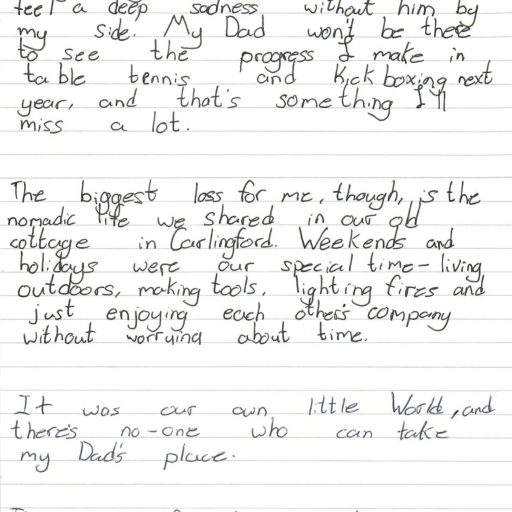 feel a deep sadness without him by
my side. My Dad won't be there
to see the progress I make in
table tennis and Kick boxing next
year, and that's something I'll
miss a lot.
The biggest loss for me, though, is the
nomadic life we shared in our old
cottage in Carlingford. Weekends and
holidays were our special time - living
outdoors, making tools, lighting fires and
just enjoying each other's company
without worrying about time.
It was our own little World, and
there's no-one who can take
my Dad's place.